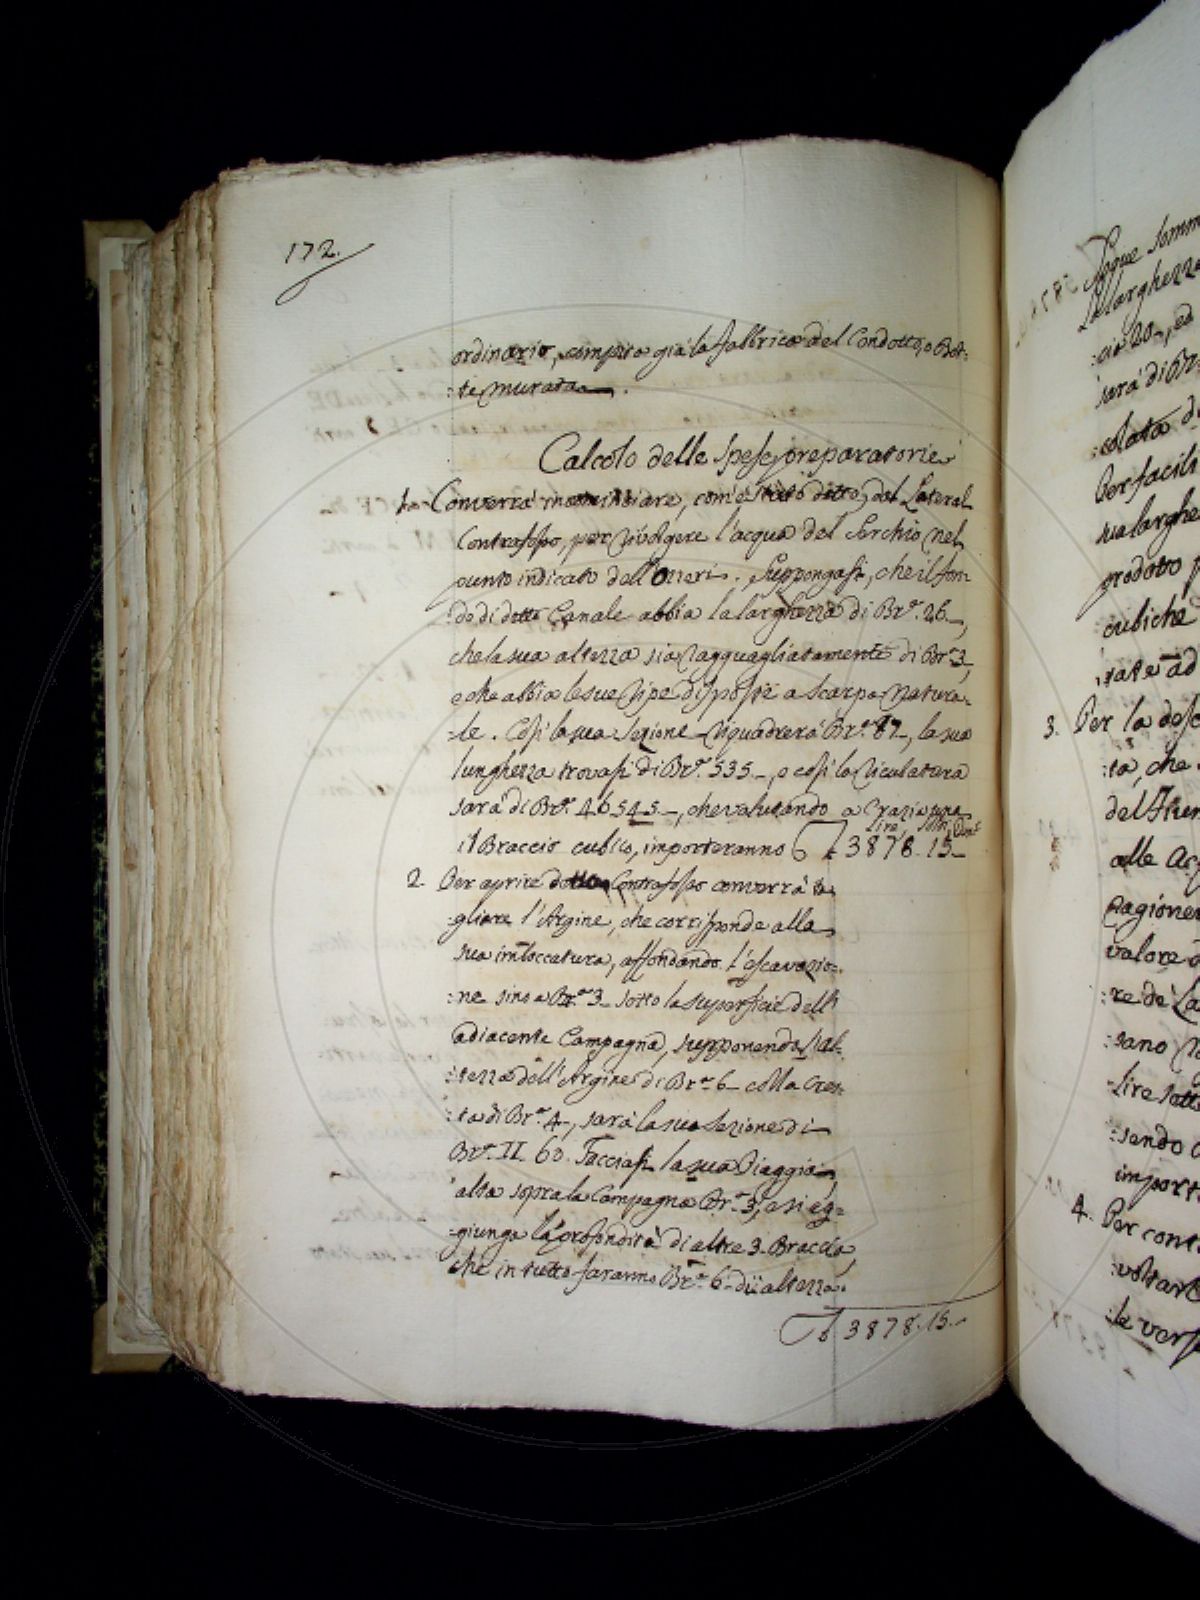 172.
ordinario, compita già la fabbrica del Condotto, o Bot-
:te murata.
Calcolo delle Spese preparatorie
1. Converrà incominciare, com'è stato detto, dal Lateral
Contrafosso, per rivolgere l'acqua del Serchio nel
punto indicato dell'Ozzeri. Suppongasi, che il fon-
:do di detto Canale abbia la larghezza di Br.ª 26,
che la sua altezza sia ragguagliatamente di Br.ª 3,
e che abbia le sue ripe disposte a scarpa natura-
:le. Così la sua Sezione riquadrerà Br.ª 87, la sua
lunghezza trovasi di Br.ª 535, e così la riculatura
sarà di Br.ª 46545, che valutando a Crazie una
lire, sol, Den.
il Braccio cubico, importeranno £ 3878.15
2. Per aprire detto Contrafosso converrà ta-
gliare l'Argine, che corrisponde alla
sua imboccatura, affondando l'escavazio-
:ne sino a Br.ª 3 sotto la superficie dell'
adiacente Campagna, supponendo l'al-
:tezza dell'Argine di Br.ª 6 colla Cres-
:ta di Br.ª 4, sarà la sua Sezione di
Br.ª II 60. Facciasi la sua Piaggia
alta sopra la Campagna Br.ª 3, e si ag-
:giunga la profondità di altre 3. Braccia,
che in tutto faranno Br.ª 6 di altezza.
£ 3878.15.
Segue Somm
La larghezza
:cia 20, ed
sarà di Br.
:colata d
Per facili
sua larghe
prodotto p
cubiche
:rate ad
3. Per la desc
:ta, che
del
alle Acq
ragioner
valore d
:re de' La
:sano
:lire sette
:sendo
import
4. Per cont
:voltar
:le vers